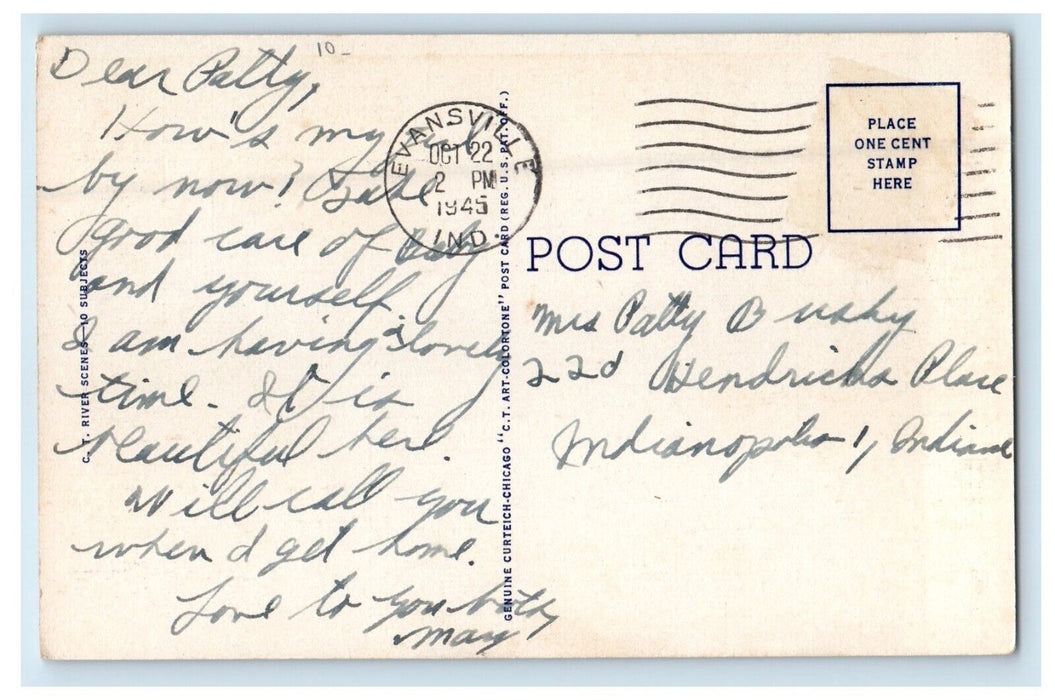 10-
Dear Patty,
How's my
by now? Take
good care of
and yourself.
I am having a lovely
time. It is
beautiful here.
Will call you
when I get home.
Love to you both,
Mary
C. T. RIVER SCENES—10 SUBJECTS
GENUINE CURTEICH-CHICAGO "C. T. ART-COLORTONE" POST CARD (REG. U. S. PAT. OFF.)
EVANSVILLE
OCT 22
2 PM
1945
IND
PLACE
ONE CENT
STAMP
HERE
POST CARD
Mrs Patty Bushy
22d Hendricks Place
Indianapolis 1, Indiana